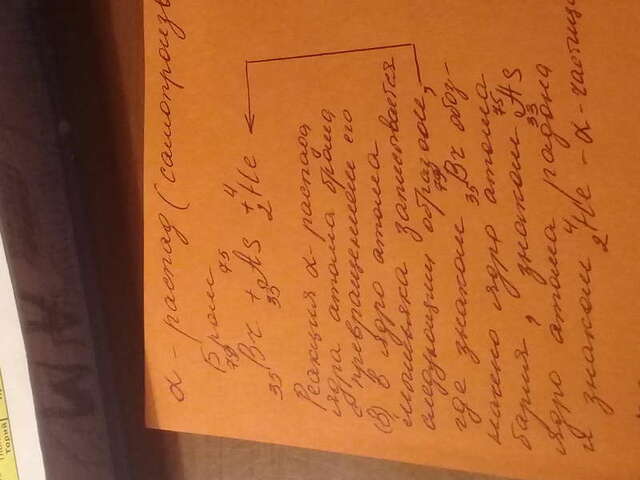 α - распад (самопроизв
Бром
79 75 4
35 Br → 33 AS + 2 He
Реакция α-распада
ядра атома брома
с превращением его
(в) в ядро атома
мышьяка записывается
следующим образом,
где знаком 79 35 Br обоз-
начено ядро атома
бария, знаком 75 33 AS
ядро атома радона
и знаком 4 2 He - α-частица
А М